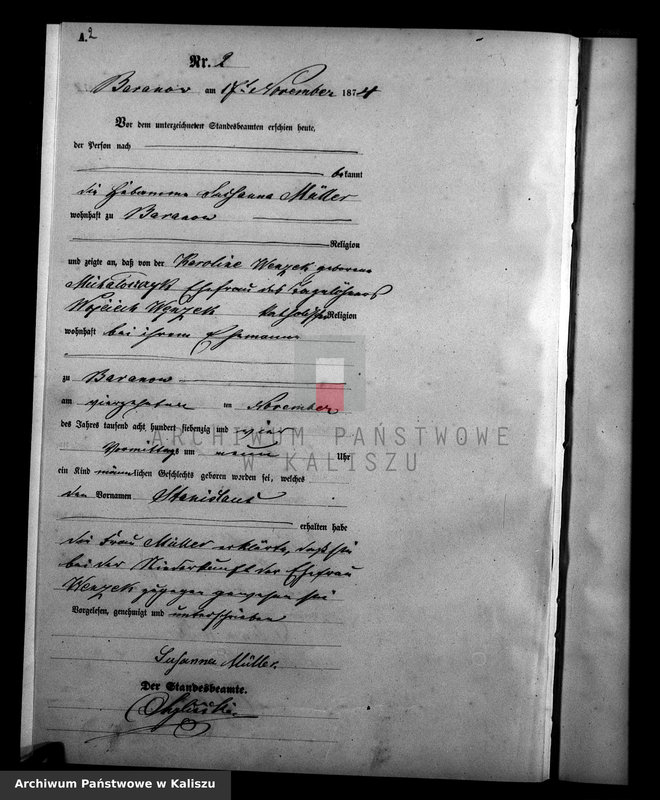 A. 2
Nr. 2
Baranow am 17ten November 1874
Vor dem unterzeichneten Standesbeamten erschien heute,
der Person nach
bekannt
die Hebamme Susanna Müller
wohnhaft zu Baranow
Religion
und zeigte an, daß von der Karoline Wenzek geborene
Michalowczyk Ehefrau des Tagelöhners
Wojciech Wenzek katholischer Religion
wohnhaft bei ihrem Ehemanne
zu Baranow
am vierzehnten ten November
des Jahres tausend acht hundert siebenzig und vier
Vormittags um neun Uhr
ein Kind männlichen Geschlechts geboren worden sei, welches
den Vornamen Stanislaus
erhalten habe
die Frau Müller erklärte, daß sie
bei der Niederkunft der Ehefrau
Wenzek zugegen gewesen sei
Vorgelesen, genehmigt und unterschrieben
Susanna Müller.
Der Standesbeamte.
ARCHIWUM PAŃSTWOWE
W KALISZU
Archiwum Państwowe w Kaliszu